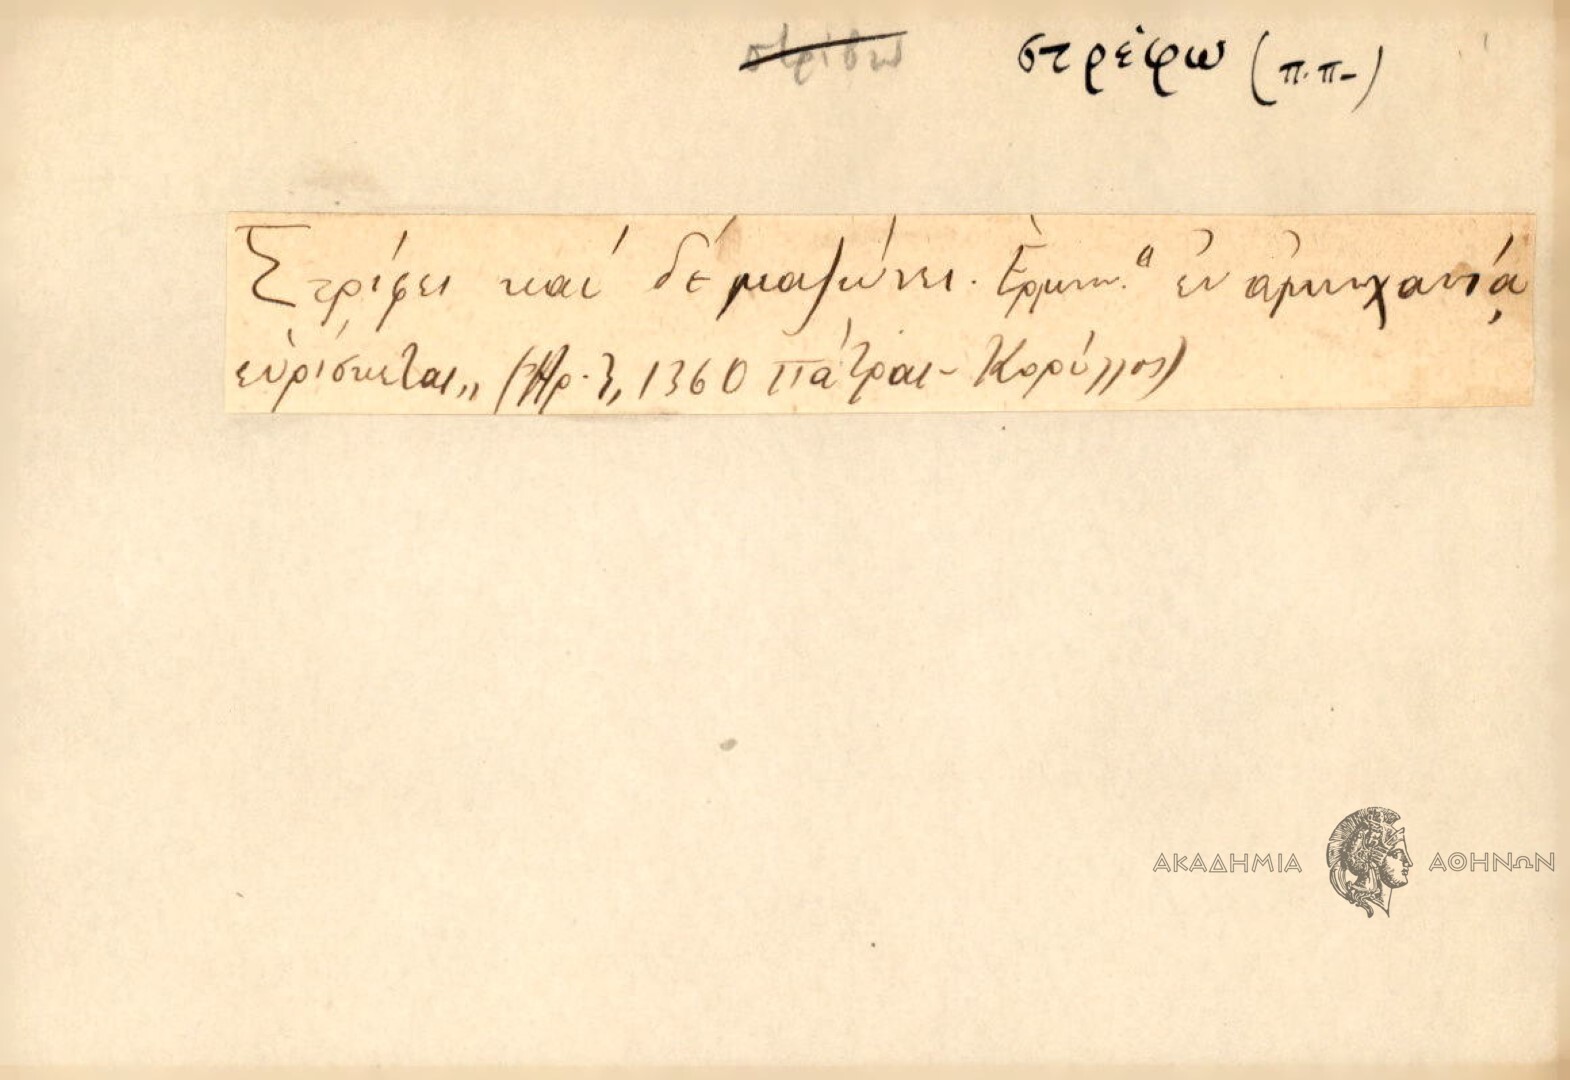 στρίβω στρέφω (π.π-)
Στρίφει καί δέ μαζώνει. Ἑρμην. " ἐν ἀμηχανίᾳ
εὑρίσκεται,, ( 1360 Πάτραι - Κορύλλος)
ΑΚΑΔΗΜΙΑ ΑΘΗΝΩΝ